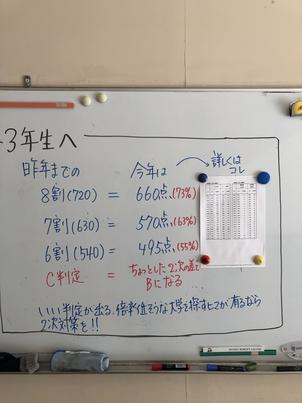 3年生へ
昨年までの 今年は 詳しくはコレ
8割(720) = 660点(73%)
7割(630) = 570点(63%)
6割(540) = 495点(55%)
C判定 = ちょっとした2次の差でBになる
いい判定が出る、倍率低そうな大学を探すヒマが有るなら
2次対策を!!